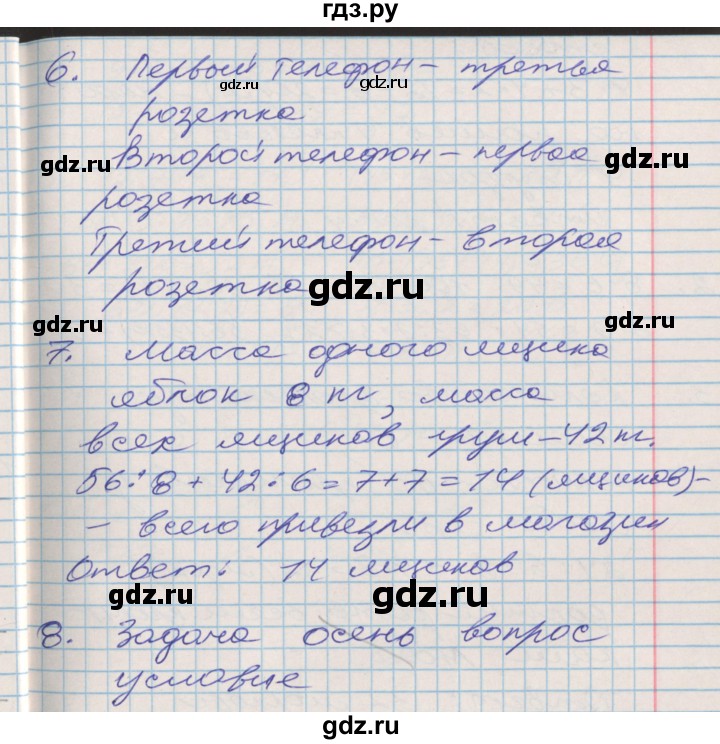 гдз.ру
6. Первый телефон – третья
gdz.ru gdz.ru
розетка
gdz.ru Второй телефон – первая gdz.ru
розетка
Третий телефон – вторая
розетка gdz.ru
gdz.ru gdz.ru
7. Масса одного ящика
яблок 8 кг, масса
всех ящиков груш – 42 кг.
56 : 8 + 42 : 6 = 7 + 7 = 14 (ящиков) –
– всего привезли в магазин
Ответ: 14 ящиков
gdz.ru gdz.ru
8. Задача осень вопрос
условие
gdz.ru